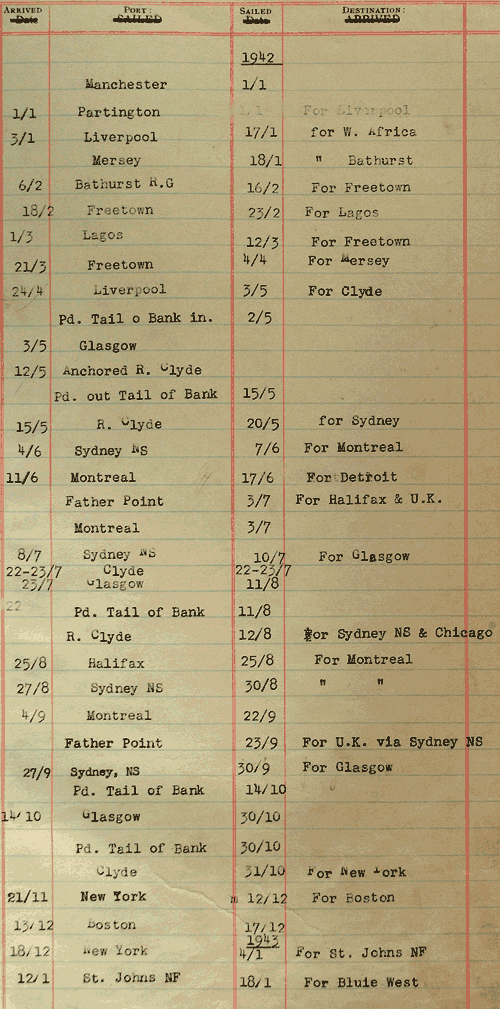 ARRIVED PORT: SAILED DESTINATION:
Date SAILED Date ARRIVED
1942
Manchester 1/1
1/1 Partington 1/1 For Liverpool
3/1 Liverpool 17/1 for W. Africa
Mersey 18/1 " Bathurst
6/2 Bathurst R.G 16/2 For Freetown
18/2 Freetown 23/2 For Lagos
1/3 Lagos 12/3 For Freetown
21/3 Freetown 4/4 For Mersey
24/4 Liverpool 3/5 For Clyde
Pd. Tail o Bank in. 2/5
3/5 Glasgow
12/5 Anchored R. Clyde
Pd. out Tail of Bank 15/5
15/5 R. Clyde 20/5 for Sydney
4/6 Sydney NS 7/6 For Montreal
11/6 Montreal 17/6 For Detroit
Father Point 3/7 For Halifax & U.K.
Montreal 3/7
8/7 Sydney NS 10/7 For Glasgow
22-23/7 Clyde 22-23/7
23/7 Glasgow 11/8
22 Pd. Tail of Bank 11/8
R. Clyde 12/8 For Sydney NS & Chicago
25/8 Halifax 25/8 For Montreal
27/8 Sydney NS 30/8 " "
4/9 Montreal 22/9
Father Point 23/9 For U.K. via Sydney NS
27/9 Sydney, NS 30/9 For Glasgow
Pd. Tail of Bank 14/10
14/10 Glasgow 30/10
Pd. Tail of Bank 30/10
Clyde 31/10 For New York
21/11 New York 12/12 For Boston
13/12 Boston 17/12
1943
18/12 New York 4/1 For St. Johns NF
12/1 St. Johns NF 18/1 For Bluie West